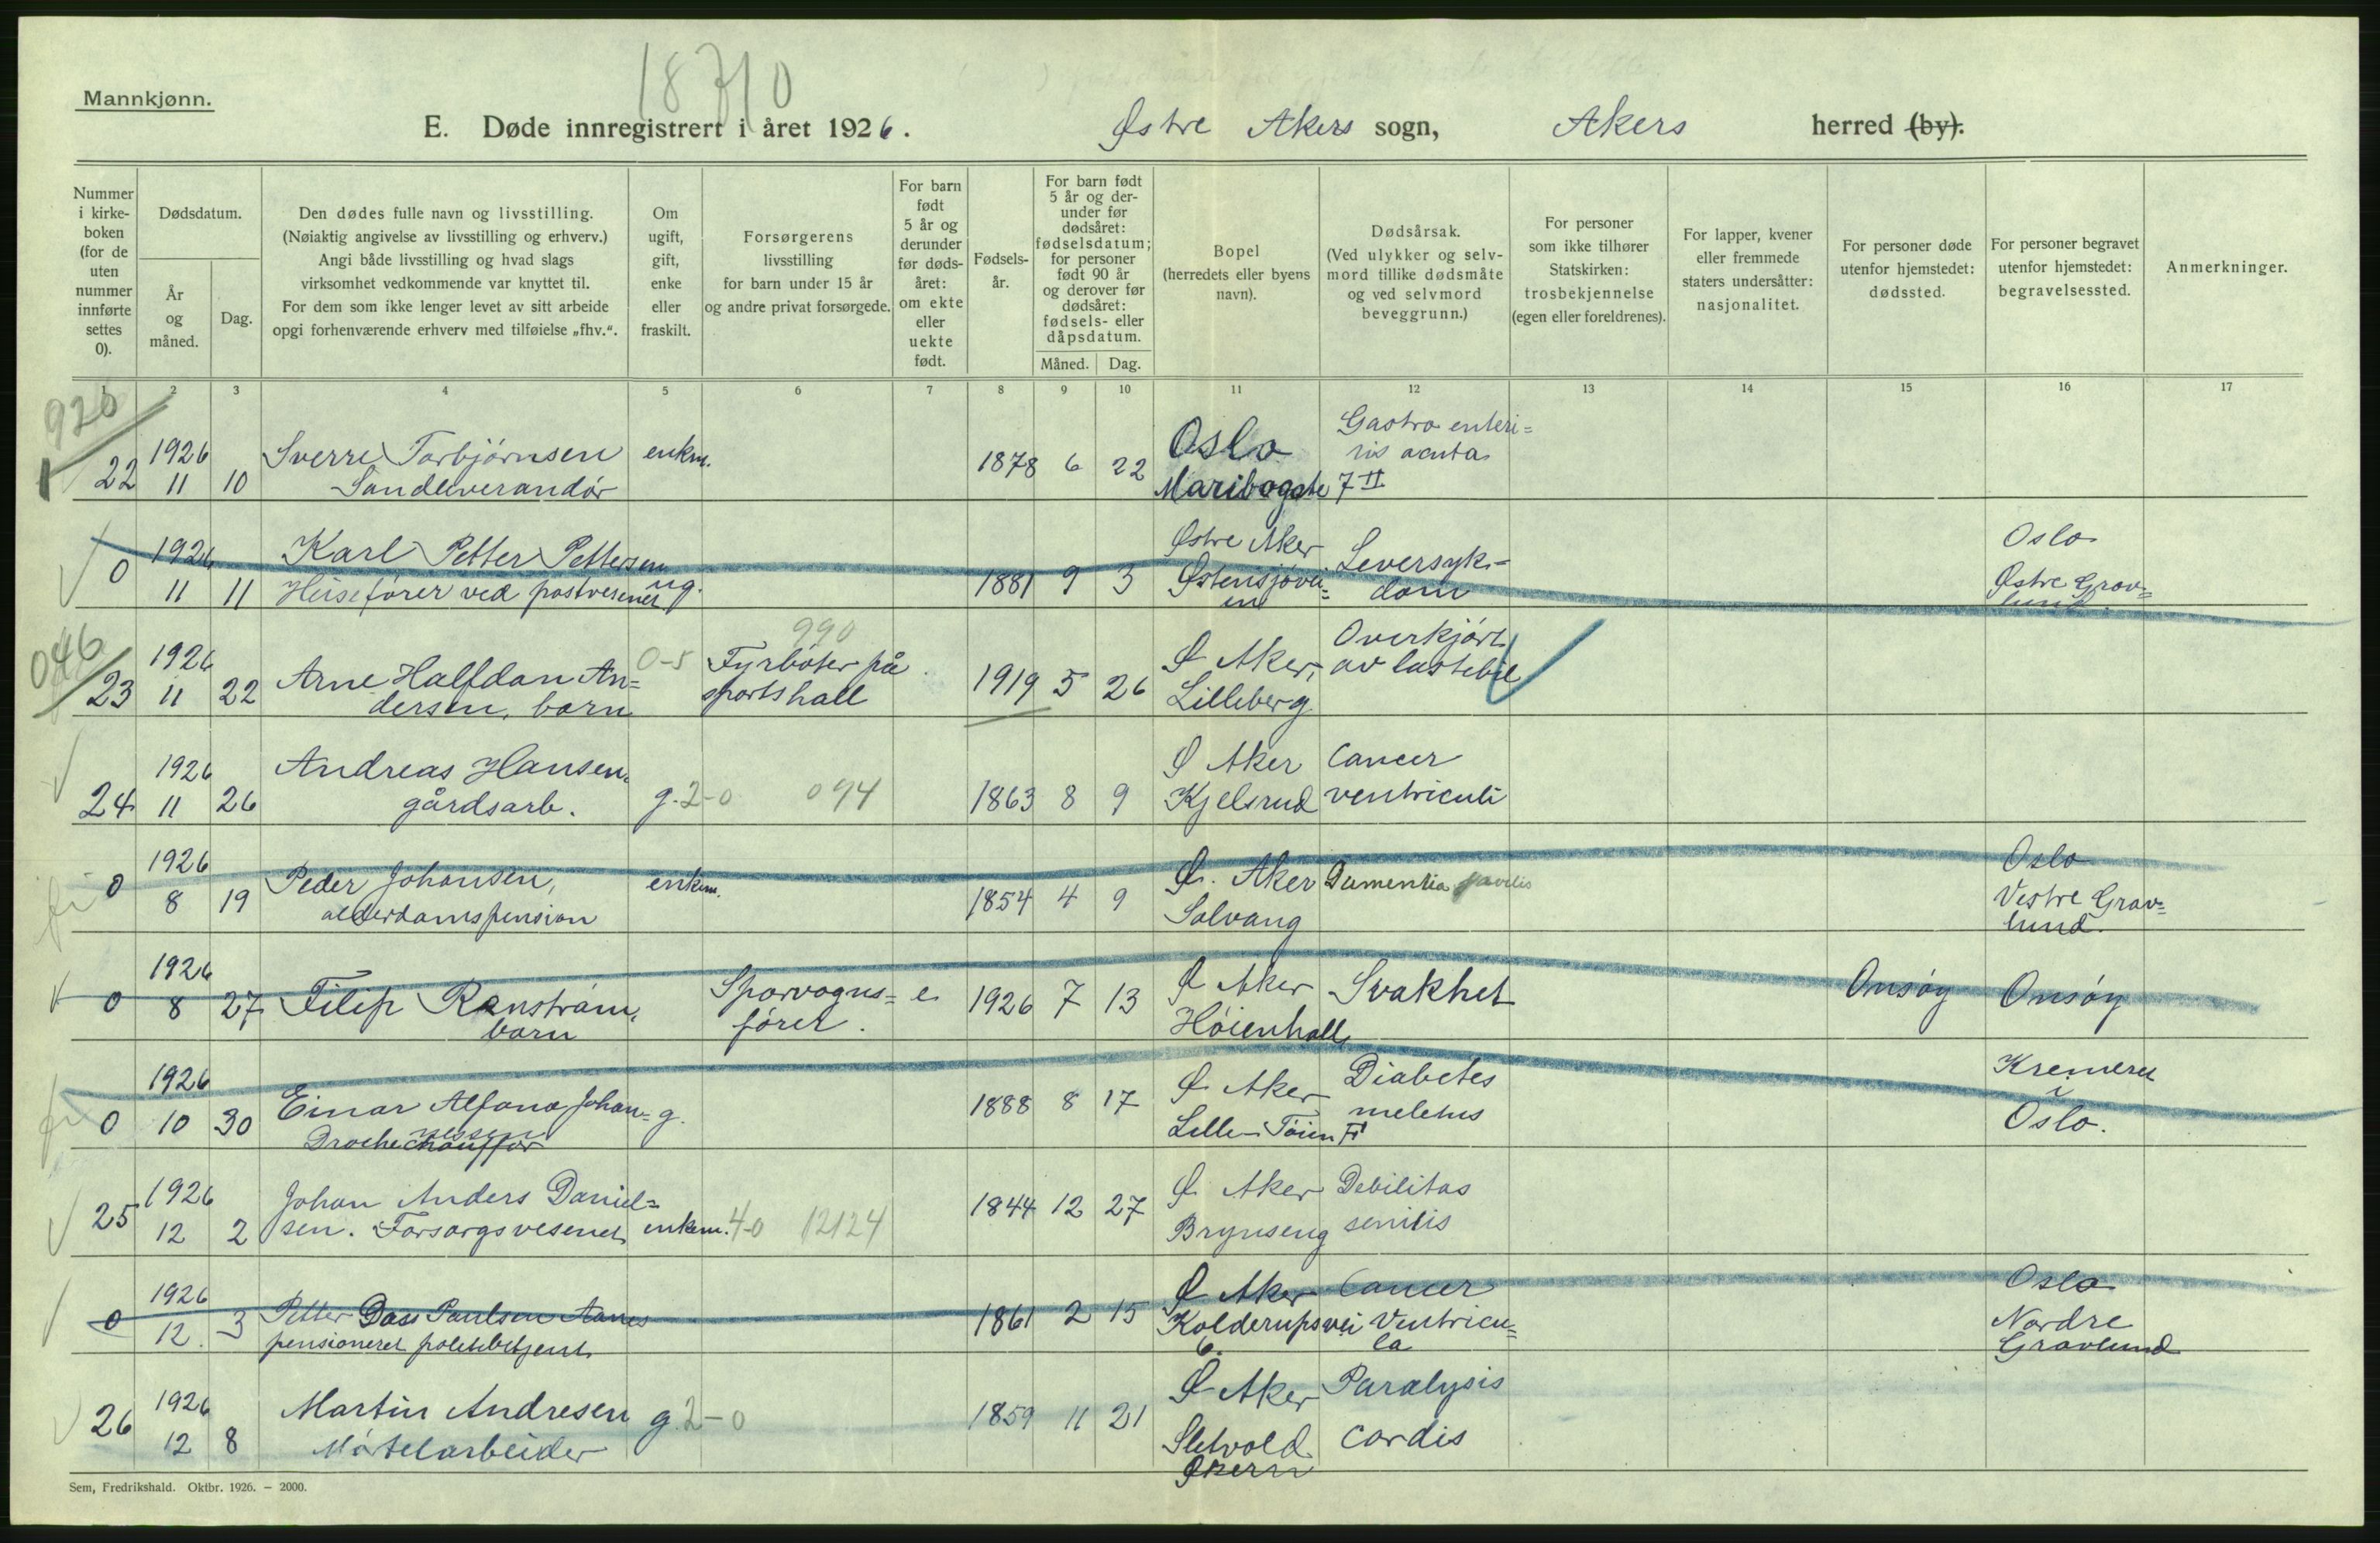 18710
Mannkjønn.
E. Døde innregistrert i året 1926. Østre Akers sogn, Akers herred (by).
Nummer i kirke-boken (for de uten nummer innførte settes 0).
Dødsdatum.
År og måned.
Dag.
Den dødes fulle navn og livsstilling.
(Nøiaktig angivelse av livsstilling og erhverv.)
Angi både livsstilling og hvad slags
virksomhet vedkommende var knyttet til.
For dem som ikke lenger levet av sitt arbeide
opgi forhenværende erhverv med tilføielse „fhv.“.
Om ugift, gift, enke eller fraskilt.
Forsørgerens
livsstilling
for barn under 15 år
og andre privat forsørgede.
For barn født 5 år og derunder før døds-året: om ekte eller uekte født.
Fødsels-år.
For barn født 5 år og der-under før dødsåret: fødselsdatum; for personer født 90 år og derover før dødsåret: fødsels- eller dåpsdatum.
Måned. Dag.
Bopel
(herredets eller byens
navn).
Dødsårsak.
(Ved ulykker og selv-
mord tillike dødsmåte
og ved selvmord
beveggrunn.)
For personer
som ikke tilhører
Statskirken:
trosbekjennelse
(egen eller foreldrenes).
For lapper, kvener
eller fremmede
staters undersåtter:
nasjonalitet.
For personer døde
utenfor hjemstedet:
dødssted.
For personer begravet
utenfor hjemstedet:
begravelsessted.
Anmerkninger.
1 2 3 4 5 6 7 8 9 10 11 12 13 14 15 16 17
22 1926 11 10 Sverre Torbjørnsen enkm. 1878 6 22 Oslo Gastro enteri=
Sandleverandør Maribogate 7 II tis acuta
0 1926 11 11 Karl Petter Pettersen ug. 1881 9 3 Østre Aker Leversyk- Oslo
Heisefører ved postvesenet Østensjøvei=en dom Østre Grav=lund.
046
23 1926 11 22 Arne Halfdan An= 0-5 990 Fyrbøter på 1919 5 26 Ø Aker, Overkjørt
dersen, barn sportshall Lilleberg av lastebil
24 1926 11 26 Andreas Hansen, g. 2-0 094 1863 8 9 Ø Aker Cancer
gårdsarb. Kjelsrud ventriculi
0 1926 8 19 Peder Johansen, enkm. 1854 4 9 Ø. Aker Dementia Oslo
alderdomspension Solvang Vestre Grav=lund.
0 1926 8 27 Filip Ranstrøm, Sporvogns= e. 1926 7 13 Ø Aker Svakhet Onsøy Onsøy
barn fører. Høienhall
0 1926 10 30 Einar Alfono Johan= g. 1888 8 17 Ø Aker Diabetes Kremeret i
nessen Drochechauffør Lille-Tøien meletus Oslo.
25 1926 12 2 Johan Anders Daniel= enkem. 4-0 12124 1844 12 27 Ø Aker Debilitas
sen. Forsorgsvesenet Brynseng senilis
0 1926 12. 3 Petter Dass Paulsen Aanes 1861 2 15 Ø Aker Cancer Oslo
pensioneret politibetjent Kolderupsvei 6. Ventricu=la Nordre Gravlund
26 1926 12 8 Martin Andresen g. 2-0 1859 11 21 Ø Aker Paralysis
Mørtelarbeider Sletvold Økern cordis
Sem, Fredrikshald. Oktbr. 1926. – 2000.